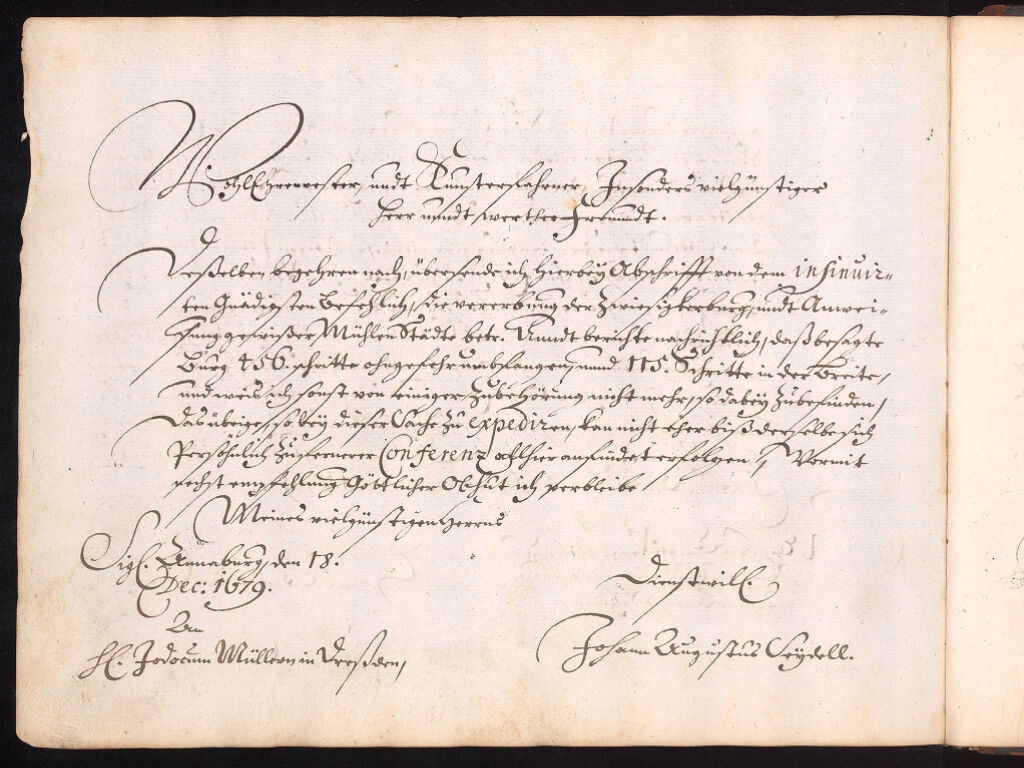 WohlEhrenvester, undt Kunsterfahrner, Insonders vielgünstiger
Herr unndt werther Freundt.
Deßelben begehren nach, übersende ich hierbey Abschrifft von dem insinuir-
ten Gnädigsten Befehlich, die vererbung der Zwiesigkerburg, undt Anwei-
sung gewißer Mühlen Städte betr. Unndt berichte nachrichtlich, daß besagte
Burg 456. schritte ohngefehr umbfangen, unnd 115. Schritte in der Breite,
und weis ich sonst von einiger Zubehörung nicht mehr, so dabey zubefinden,
Das übrige, so bey dieser Sache zu expediren, kan nicht eher biß derselbe sich
Persöhnlich zu fernerer Conferenz allhier anfindet erfolgen, Wormit
nechst empfehlung Göttlicher Obhut ich verbleibe
Meines vielgünstigen Herrns
Sigl. Annaburg, den 18.
Dec: 1679.
Dienstwill.
An
H. Jodocum Müllern in Dreßden,
Johann Augustus Seydell.